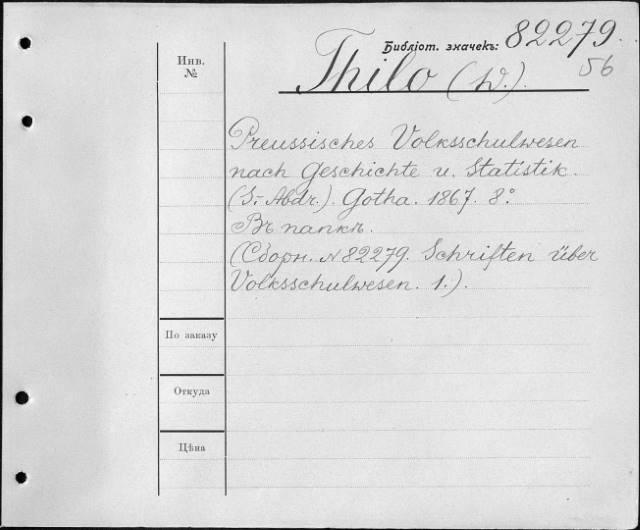 Библіот. значекъ: 82279.
56
Инв.
№
Thilo (W.).
Preussisches Volksschulwesen
nach Geschichte u. Statistik.
(S.-Abdr.). Gotha. 1867. 8°.
Въ папкѣ.
(Сборн. № 82279. Schriften über
Volksschulwesen. 1.).
По заказу
Откуда
Цѣна